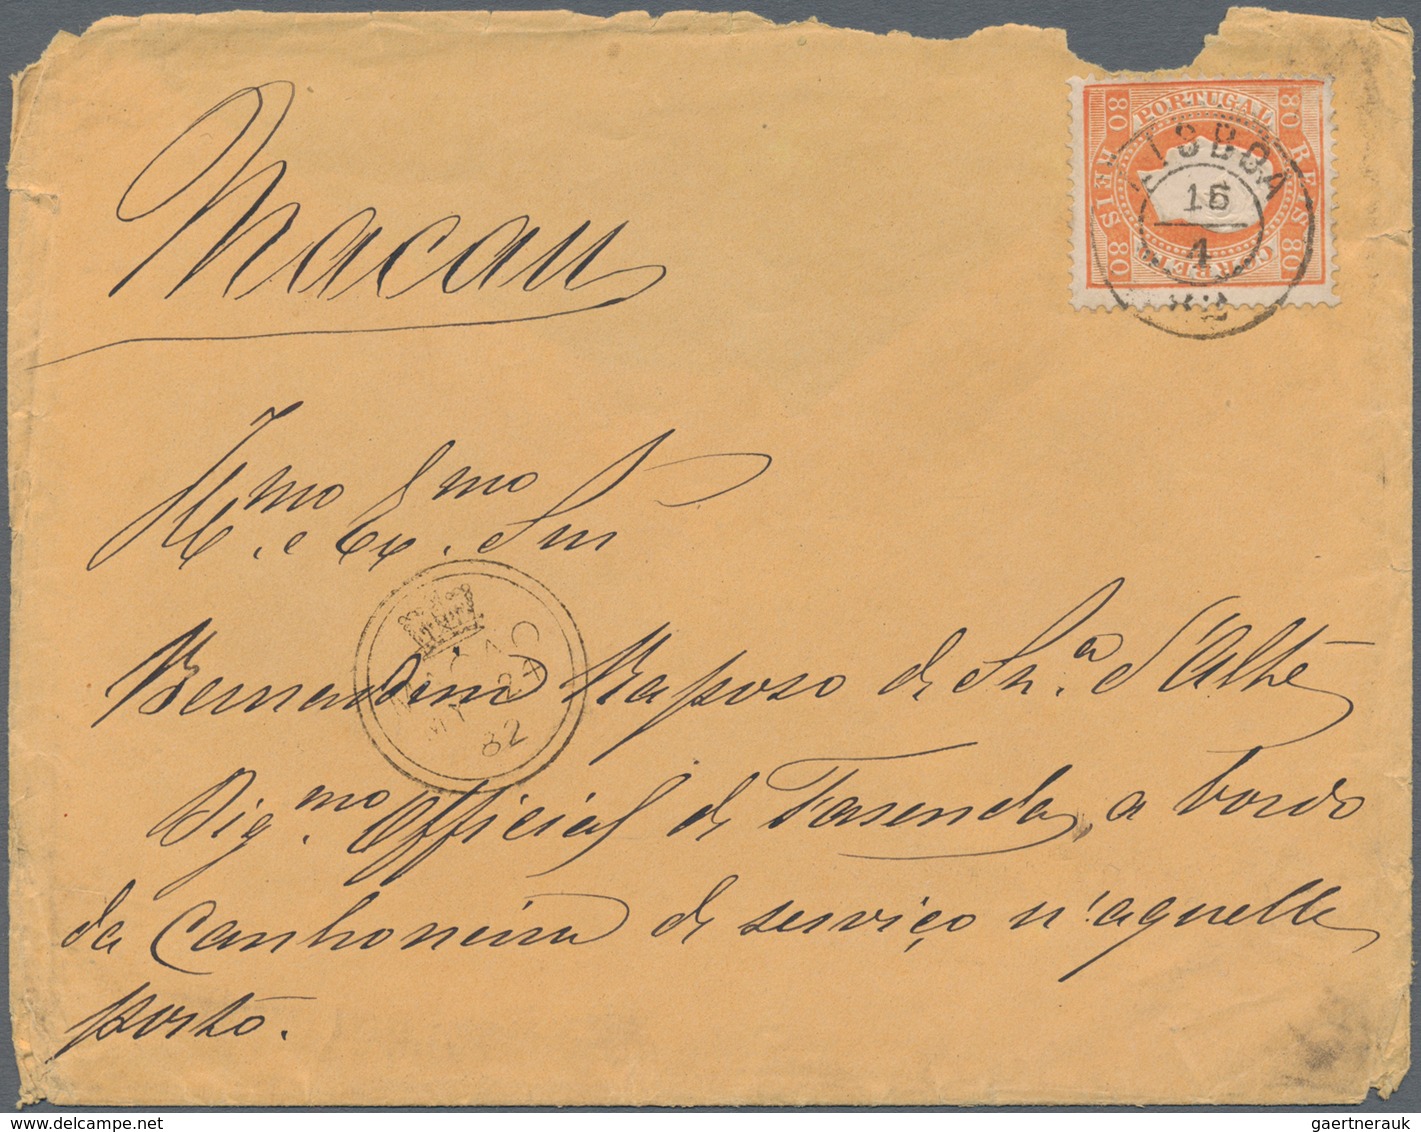 80 PORTUGAL 80
REIS REIS
80 CORREIO 80
LISBOA
16
4
82
Macau
Illmo. e Exmo. Snr
MACAO
MY 24
82
Bernardino Raposo de d'Alte
Digmo Official de Fasenda, a bordo
da Canhoneira de serviço n'aquelle
porto.
gaertnerauk